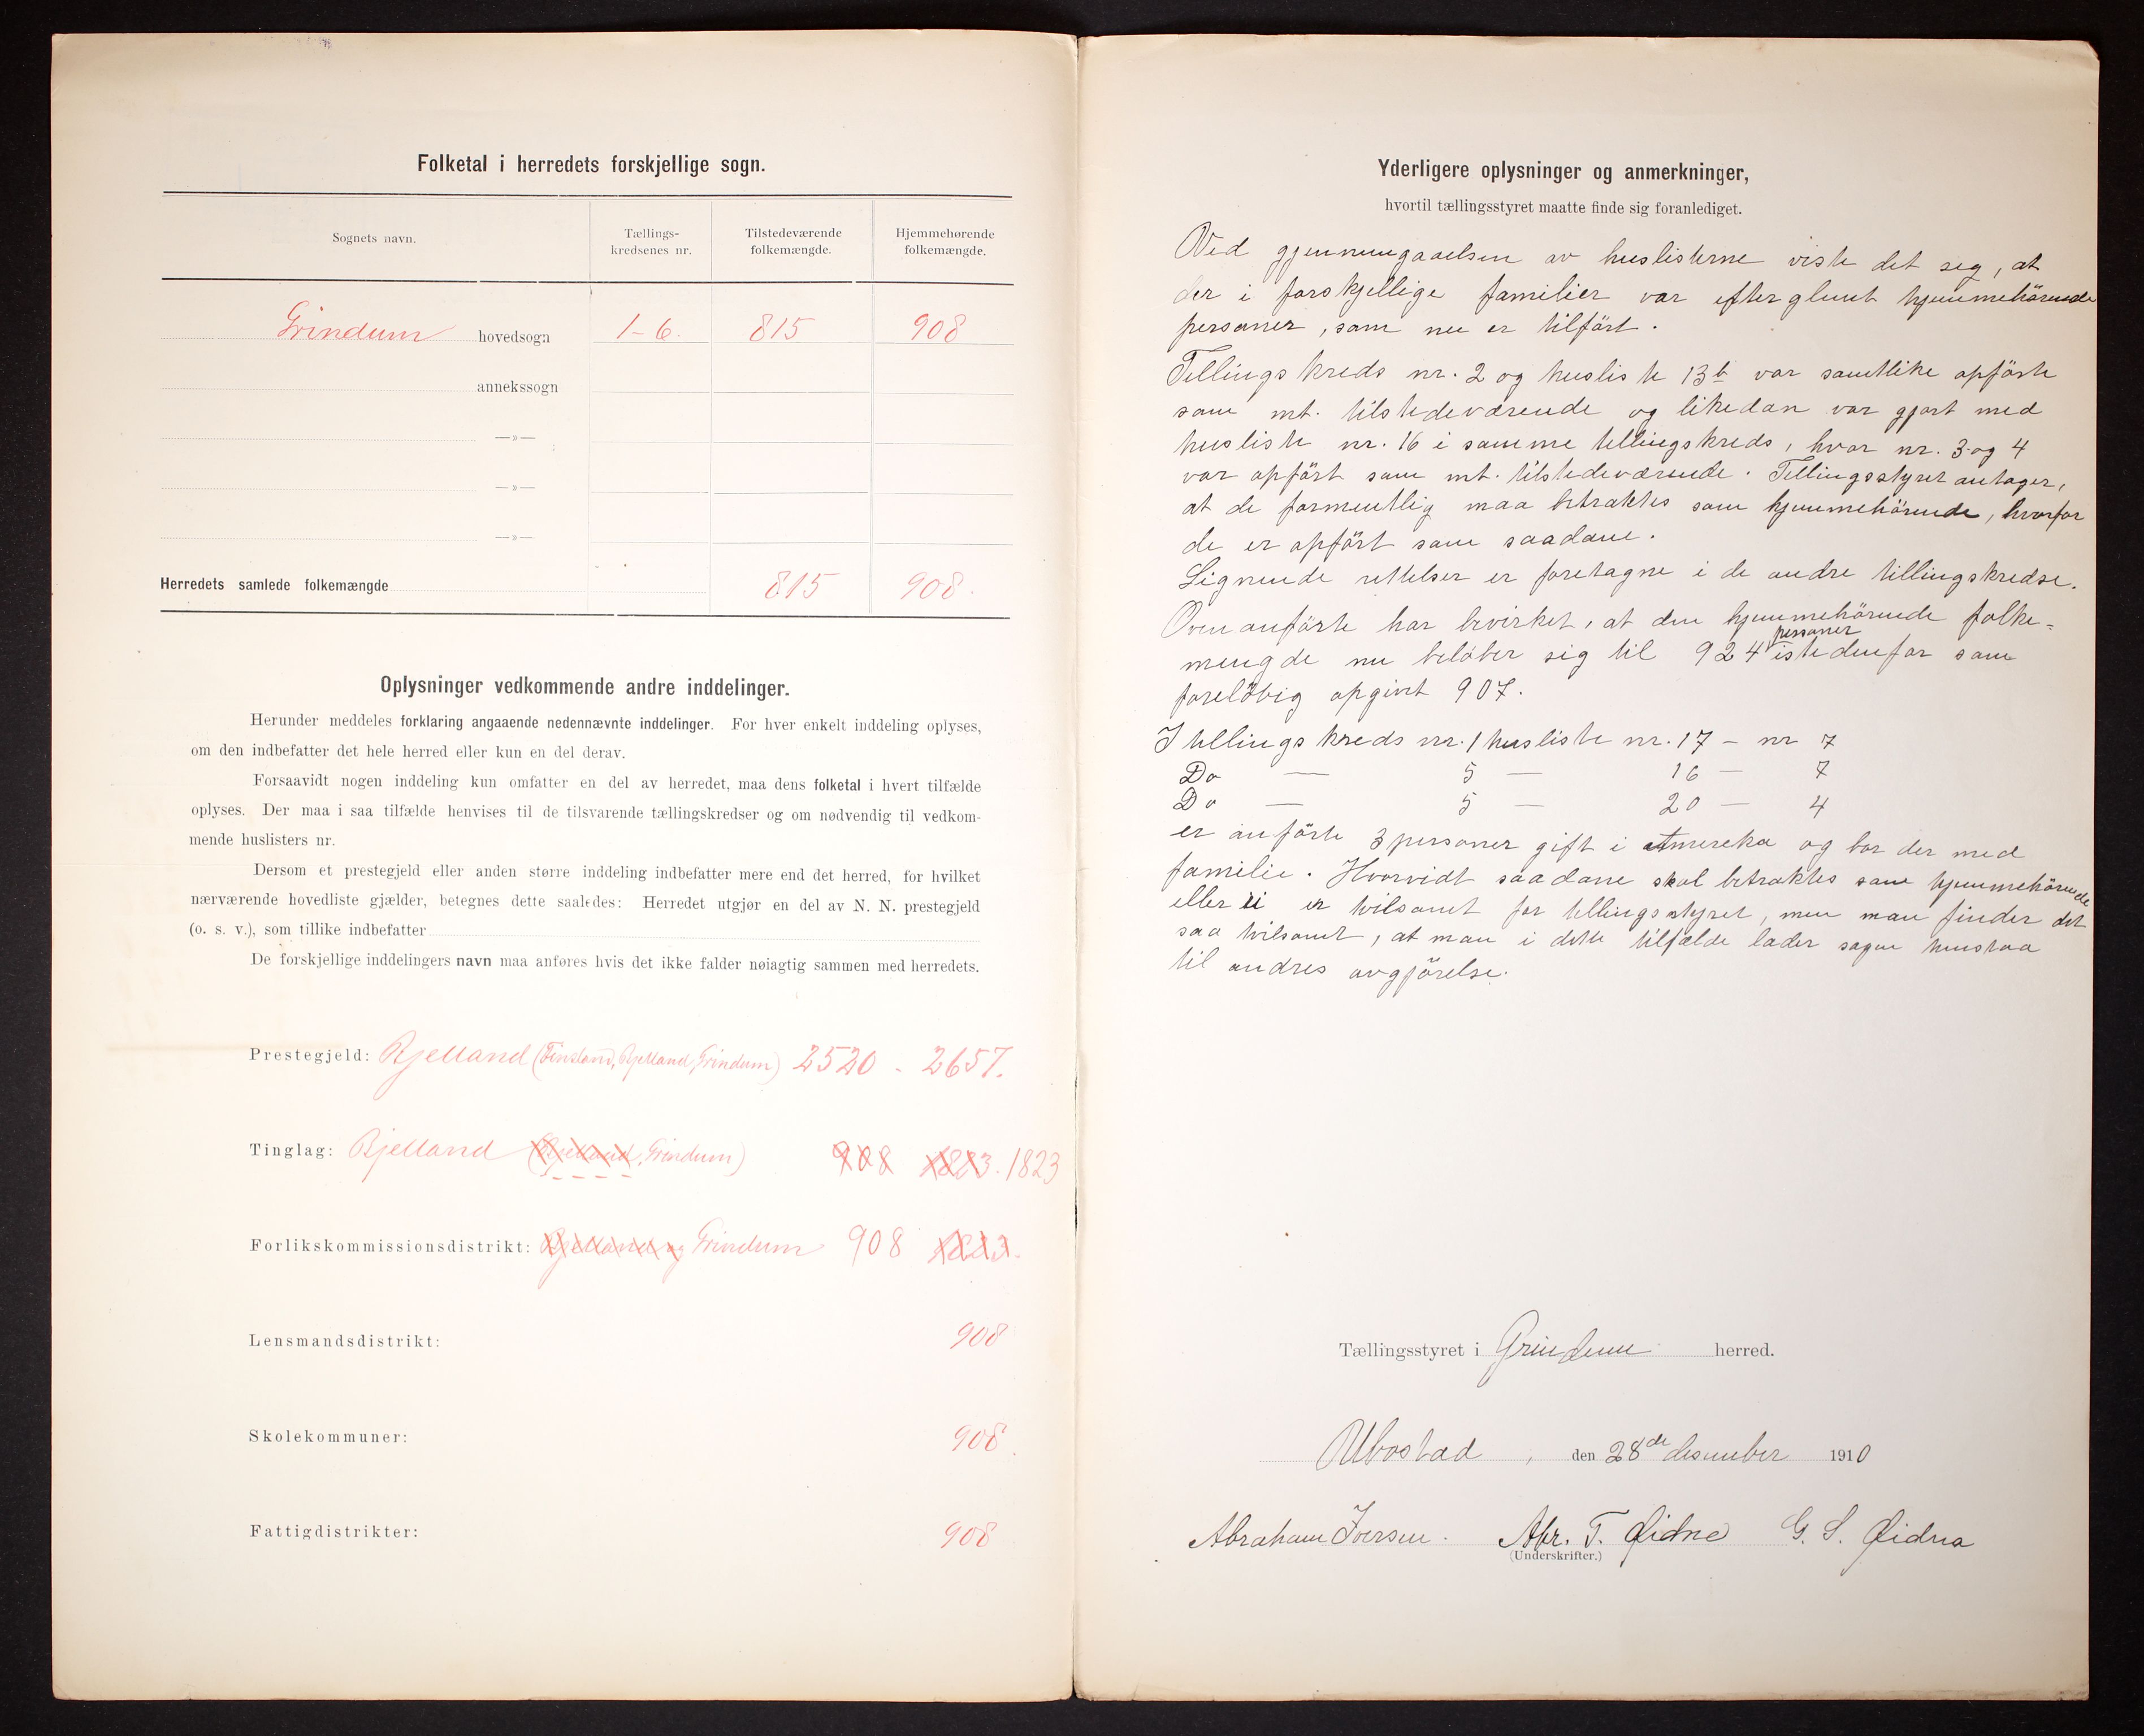 Folketal i herredets forskjellige sogn.
Sognets navn. Tællings-kredsenes nr. Tilstedeværende folkemængde. Hjemmehørende folkemængde.
Grindum hovedsogn 1-6. 815 908
annekssogn
—»—
—»—
—»—
Herredets samlede folkemængde 815 908.
Oplysninger vedkommende andre inddelinger.
Herunder meddeles forklaring angaaende nedennævnte inddelinger. For hver enkelt inddeling oplyses,
om den indbefatter det hele herred eller kun en del derav.
Forsaavidt nogen inddeling kun omfatter en del av herredet, maa dens folketal i hvert tilfælde
oplyses. Der maa i saa tilfælde henvises til de tilsvarende tællingskredser og om nødvendig til vedkom-
mende huslisters nr.
Dersom et prestegjeld eller anden større inddeling indbefatter mere end det herred, for hvilket
nærværende hovedliste gjælder, betegnes dette saaledes: Herredet utgjør en del av N. N. prestegjeld
(o. s. v.), som tillike indbefatter
De forskjellige inddelingers navn maa anføres hvis det ikke falder nøiagtig sammen med herredets.
Prestegjeld: Bjelland (Finsland, Bjelland, Grindum) 2520 - 2657.
Tinglag: Bjelland (Bjelland, Grindum) 908 1823. 1823
Forlikskommissionsdistrikt: Bjelland og Grindum 908 1823.
Lensmandsdistrikt: 908
Skolekommuner: 908.
Fattigdistrikter: 908
Yderligere oplysninger og anmerkninger,
hvortil tællingsstyret maatte finde sig foranlediget.
Ved gjennemgaaelsen av huslisterne viste det seg, at
der i forskjellige familier var efterglemt hjemmehörende
personer, som nu er tilfört.
Tellingskreds nr. 2 og husliste 13b var samtlike opförte
som mt. tilstedeværende og likedan var gjort med
husliste nr. 16 i samme tellingskreds, hvor nr. 3 og 4
var opfört som mt. tilstedeværende. Tellingsstyret antager,
at de formentlig maa betraktes som hjemmehörende, hvorfor
de er opfört som saadane.
Lignende rettelser er foretagne i de andre tellingskredse.
Ovenanförte har bevirket, at den hjemmehörende folke-
mengde nu belöber sig til 924 personer istedenfor som
forelöbig opgivet 907.
I tellingskreds nr. 1 husliste nr. 17 - nr 7
Do — 5 — 16 — 7
Do — 5 — 20 — 4
er anförte 3 personer gift i Amereka og bor der med
familie. Hvorvidt saadane skal betraktes som hjemmehörende
eller ei er tvilsomt for tellingsstyret, men man finder det
saa tvilsomt, at man i dette tilfælde lader sagen henstaa
til andres avgjörelse.
Tællingsstyret i Grindum herred.
Ubostad, den 28de desember 1910
Abraham Iversen. Abr. T. Øidne G. S. Øidna
(Underskrifter.)